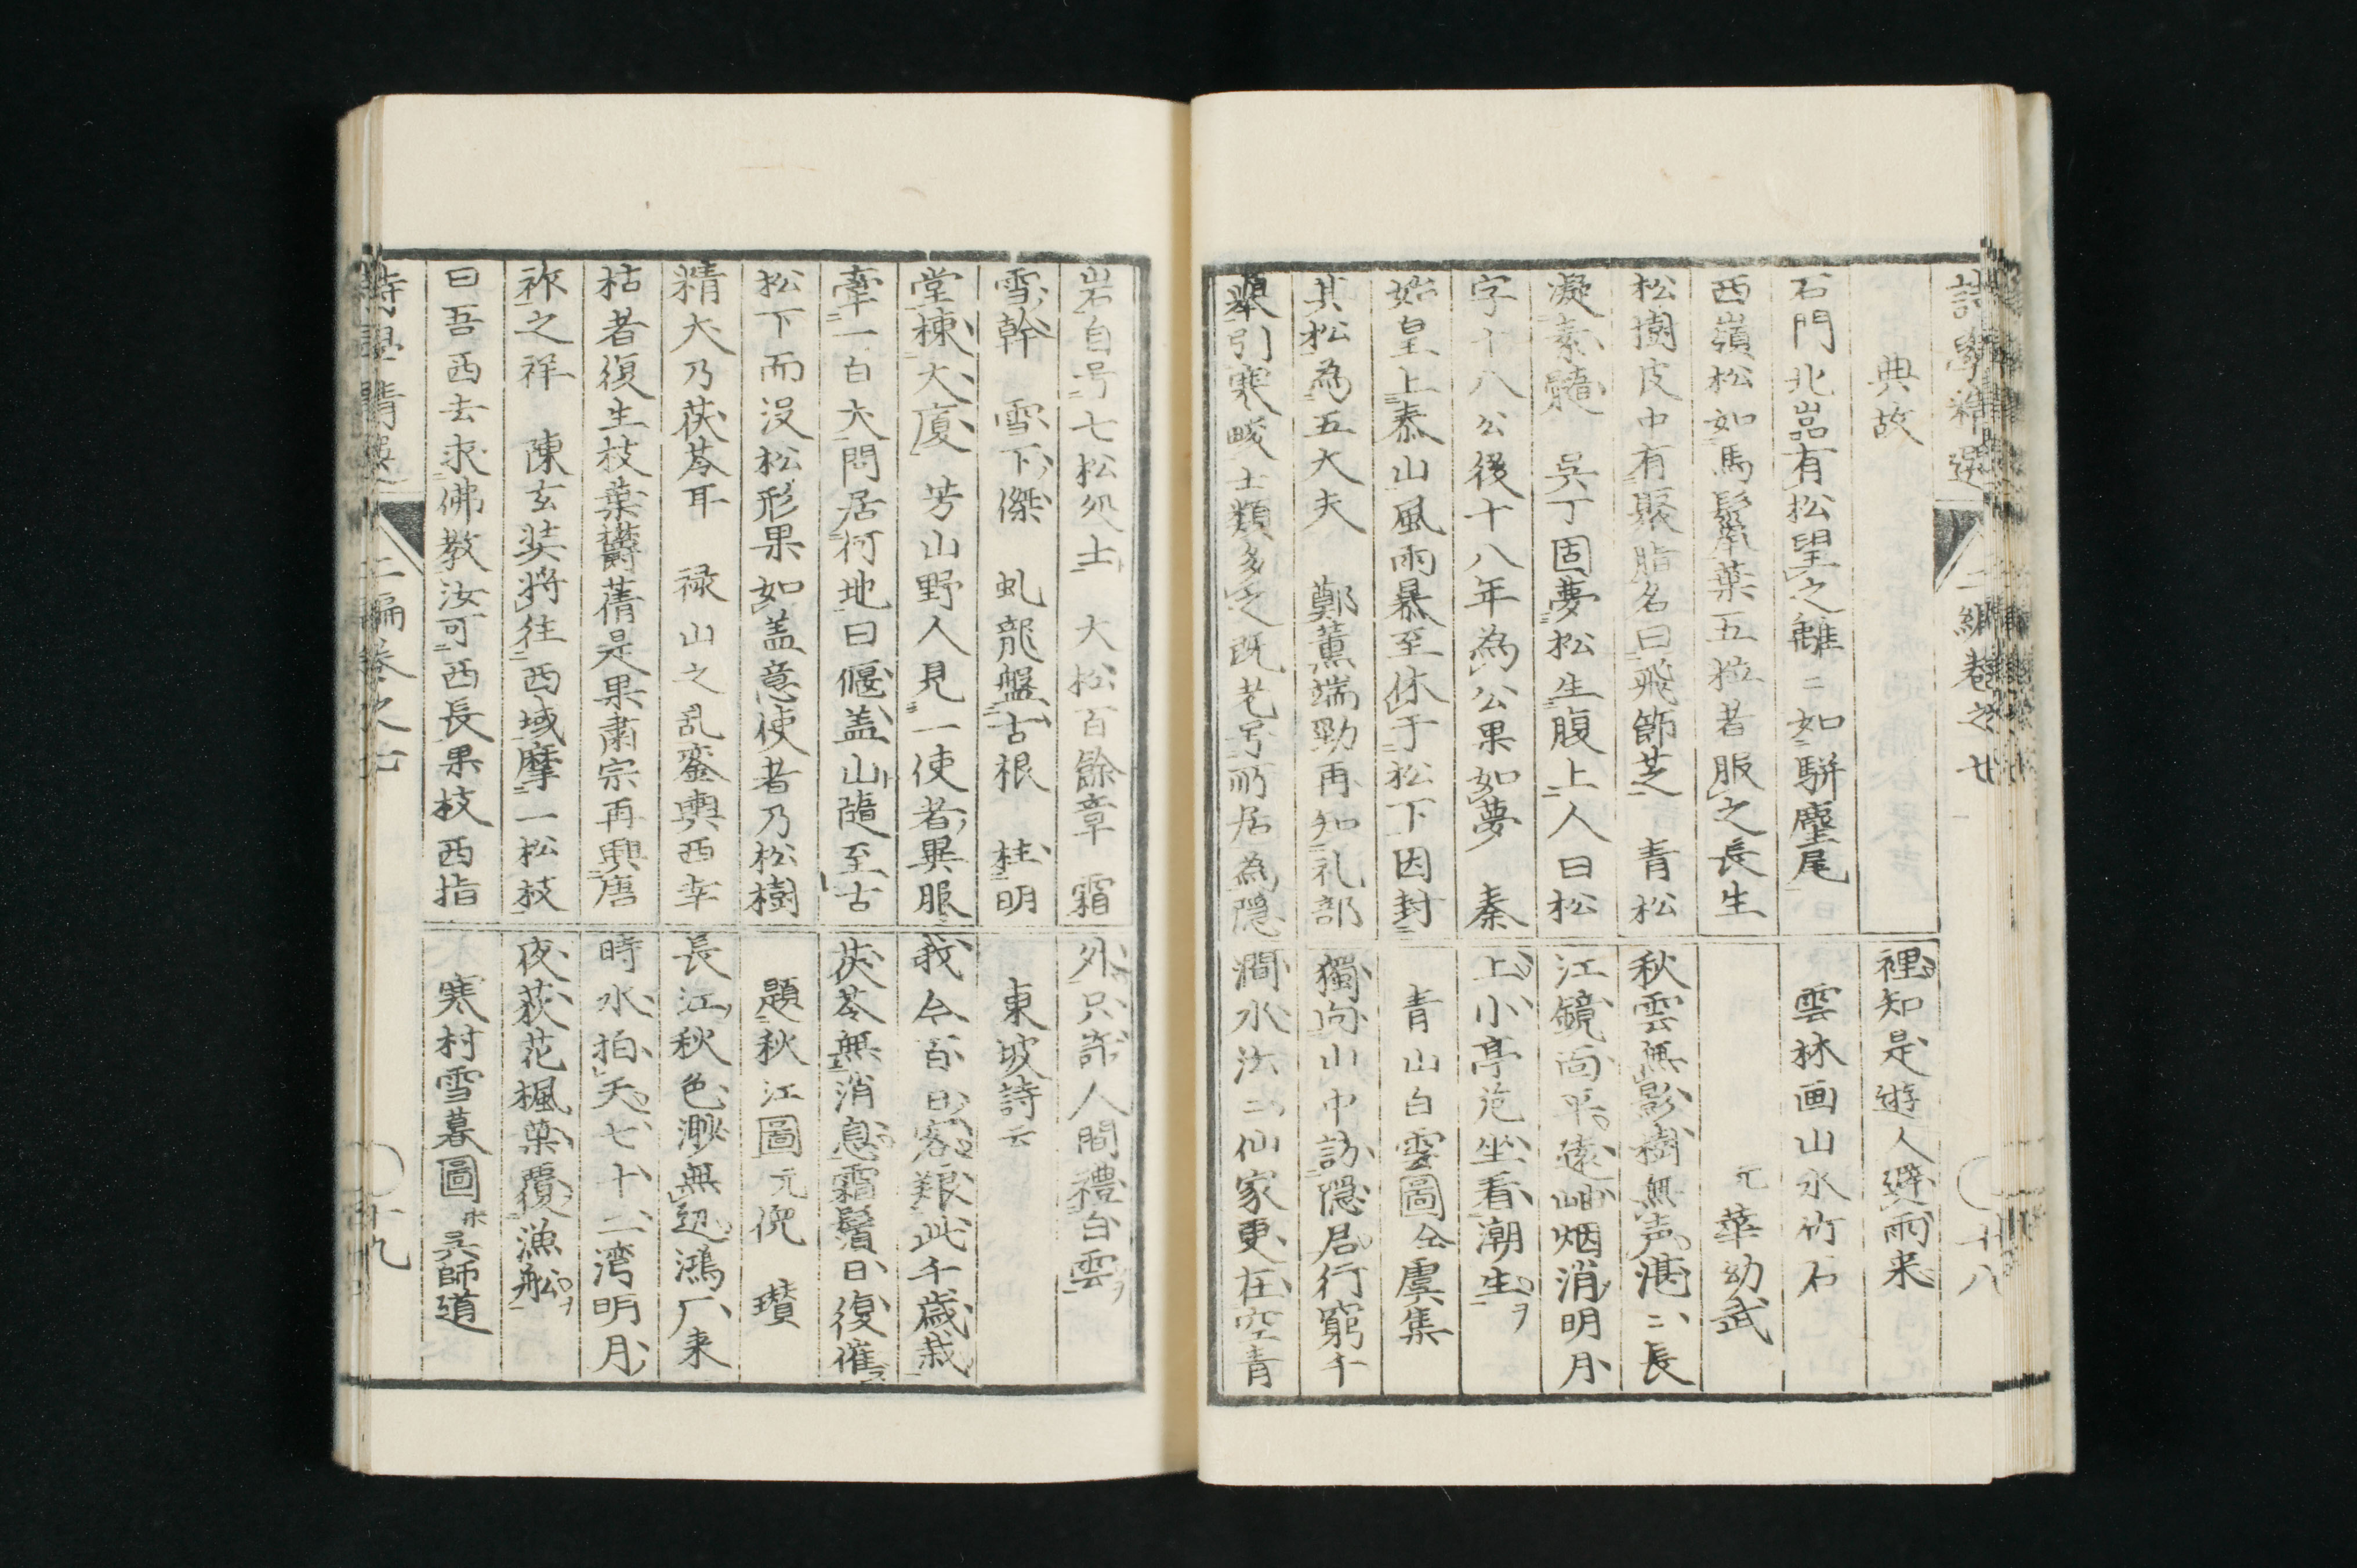 詩學精選 二編卷之廿 十八
典故
石門北嵓有松望之離〻如駢麈尾
西嶺松如馬鬛葉五粒者服之長生
松樹皮中有聚脂名曰飛節芝 青松
凝素髓 吳丁固夢松生腹上人曰松
字十八公後十八年為公果如夢 秦
始皇上泰山風雨暴至休于松下因封
其松為五大夫 鄭薫端勁再知礼部
舉引寒畯士類多之既老号所居為隱
裡知是遊人避雨来
雲林画山水竹石
元 華幼武
秋雲無影樹無声湛〻長
江鏡面平遠岫烟消明月
上小亭危坐看潮生
青山白雲圖 仝 虞集
獨向山中訪隱君行窮千
澗水沄〻仙家更在空青
岩自号七松処士 大松百餘章 霜
雪幹 雪下傑 虬龍盤古根 桂明
堂棟大廈 芳山野人見一使者異服
牽一白犬問居何地曰偃盖山隨至古
松下而没松形果如盖意使者乃松樹
精犬乃茯苓耳 禄山之乱鑾輿西幸
枯者復生枝葉欝蒨是果肅宗再興唐
祚之祥 陳玄奘將往西域摩一松枝
曰吾西去求佛教汝可西長果枝西指
外只許人間禮白雲
東坡詩云
我今百日客艱此千歳栽
茯苓無消息霜鬢日復催
題秋江圖 元 倪瓚
長江秋色渺無辺鴻厂来
時水拍天七十二湾明月
夜荻花楓葉覆漁舩
寒村雪暮圖 吳師道
詩學精選 二編卷之廿 十九